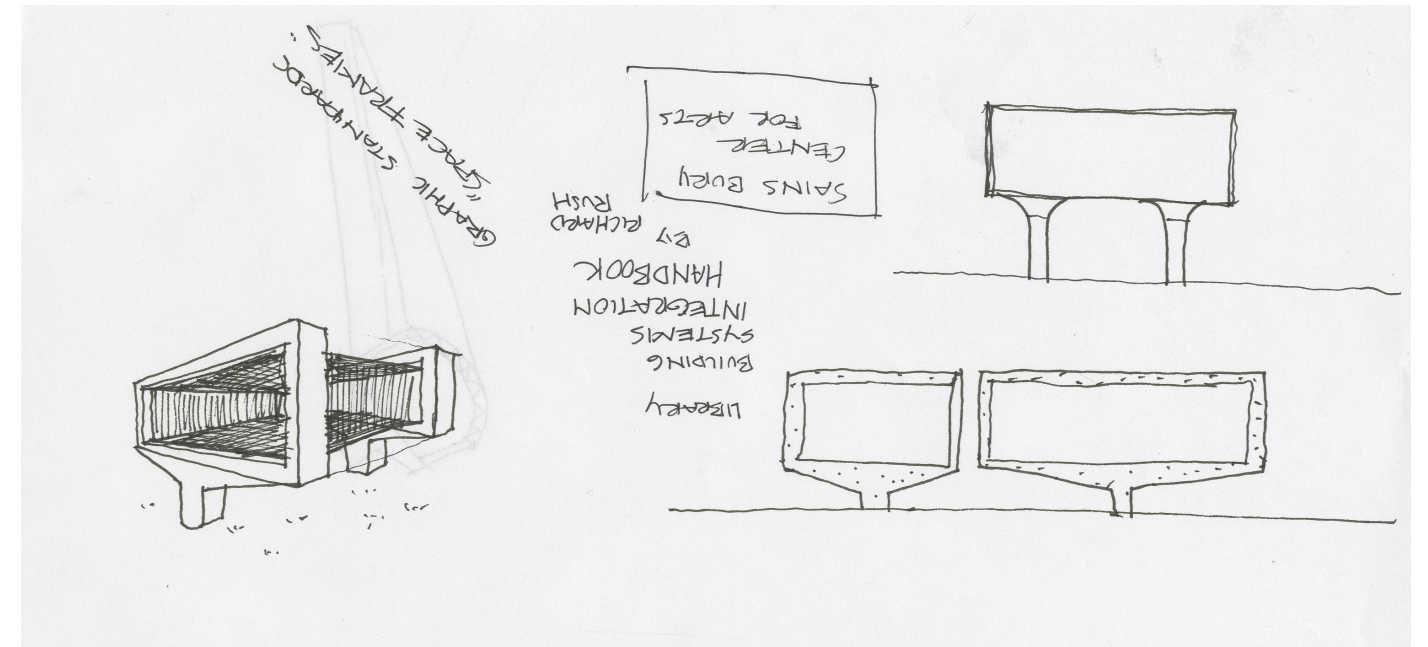 LIBRARY
BUILDING
SYSTEMS
INTEGRATION
HANDBOOK
BY RICHARD
RUSH
SAINS BURY
CENTER
FOR ARTS
GRAPHIC STANDARDS
"SPACE FRAMES"